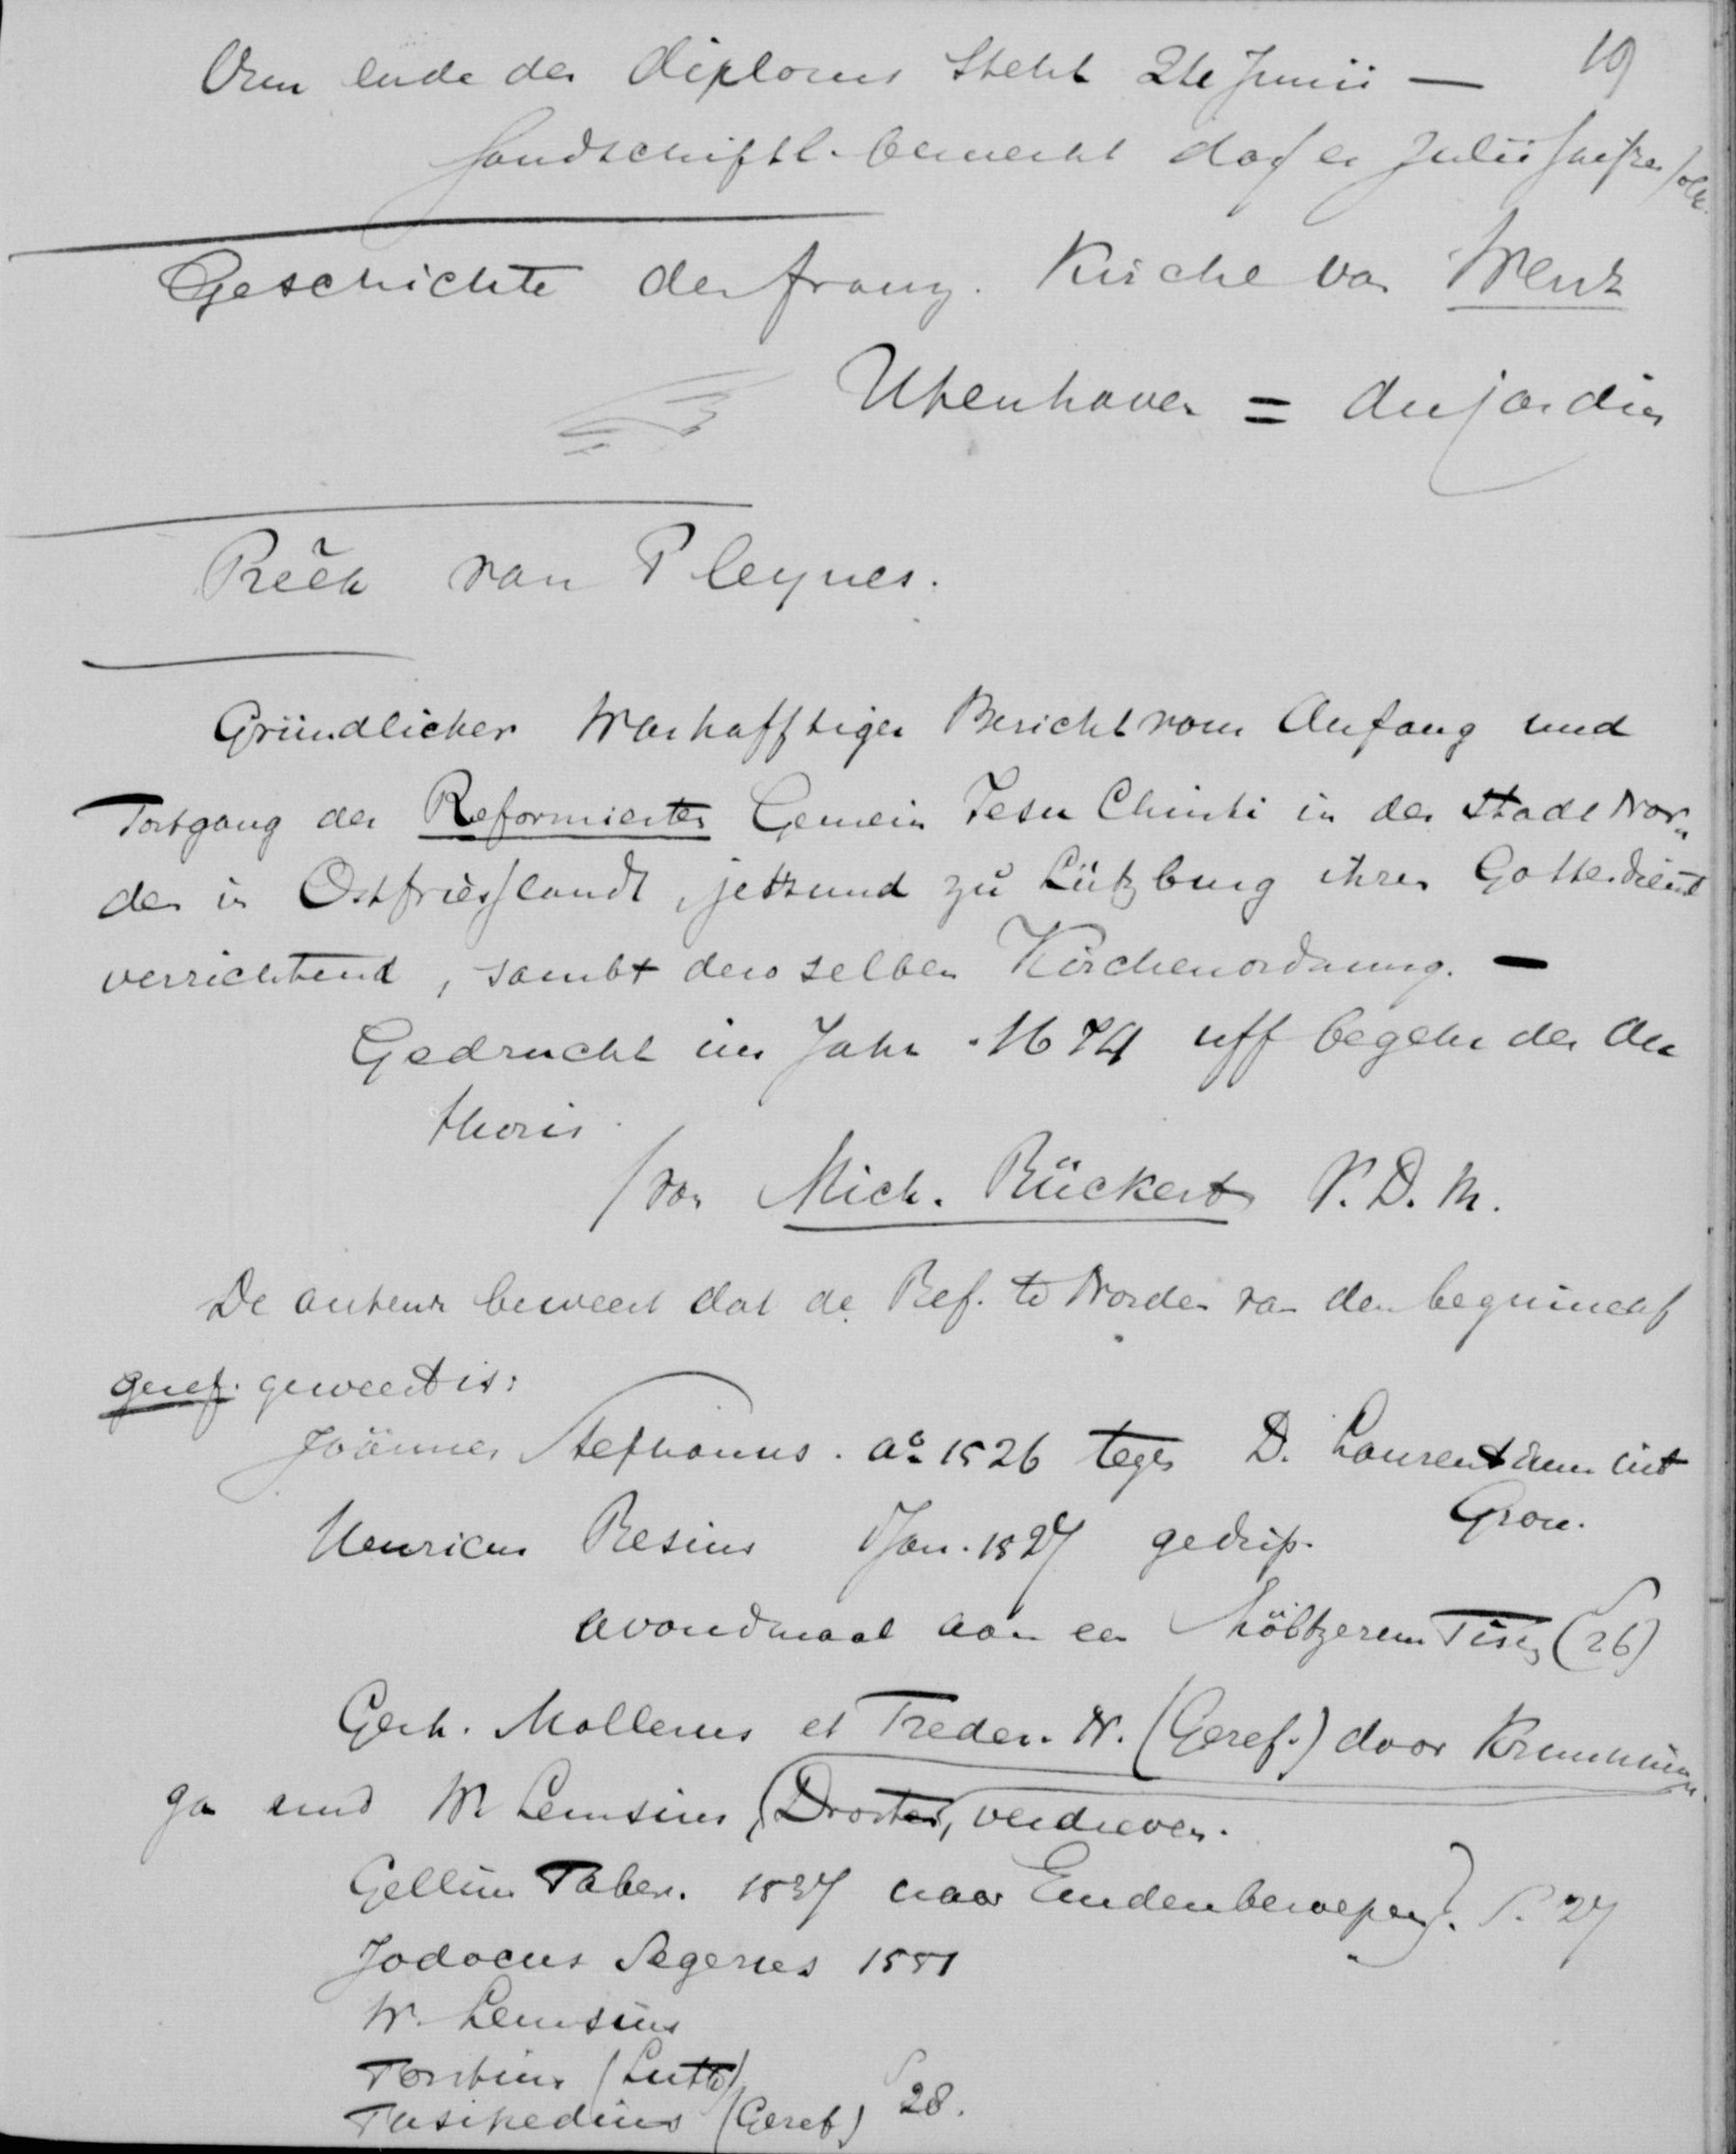 19
Am ende des diploms steht 2te Junii —
handschriftl. bemerkt daß es Julii heißen soll.
Geschichte der franz. Kirche von Menz
Utenhoven = dujardin
Preek van Pleynes.
Gründlicher Warhafftiger Bericht vom Anfang und
Fortgang der Reformierten Gemein Jesu Christi in der Stadt Nor„
den in Ostfriesslandt, jetzund zu Lützburg ihren Gottesdienst
verrichtend, sambt deroselben Kirchenordnung. —
Gedruckt im Jahr 1674 uff begehr des Au
thoris.
/von Mich. Rückert V. D. M.
De auteur beweert dat de Ref. te Norden van den beginne af
geref. geweest is:
Joännes Stephanus. ao 1526 tegen D. Laurentium uit
Gron.
Henricus Resius Jan. 1527 gedisp.
avondmaal aan een höltzerem Tisch (26)
Gerh. Mollerus et Freder. N. (Geref.) door
ga und W Lemsius, (Drosten, verdreven.
Gellius Faber. 1537 naar Emden beroepen). S. 27
Jodocus Segerus 1551
W. Lemsius
(Luth)
(Geref) S 28.